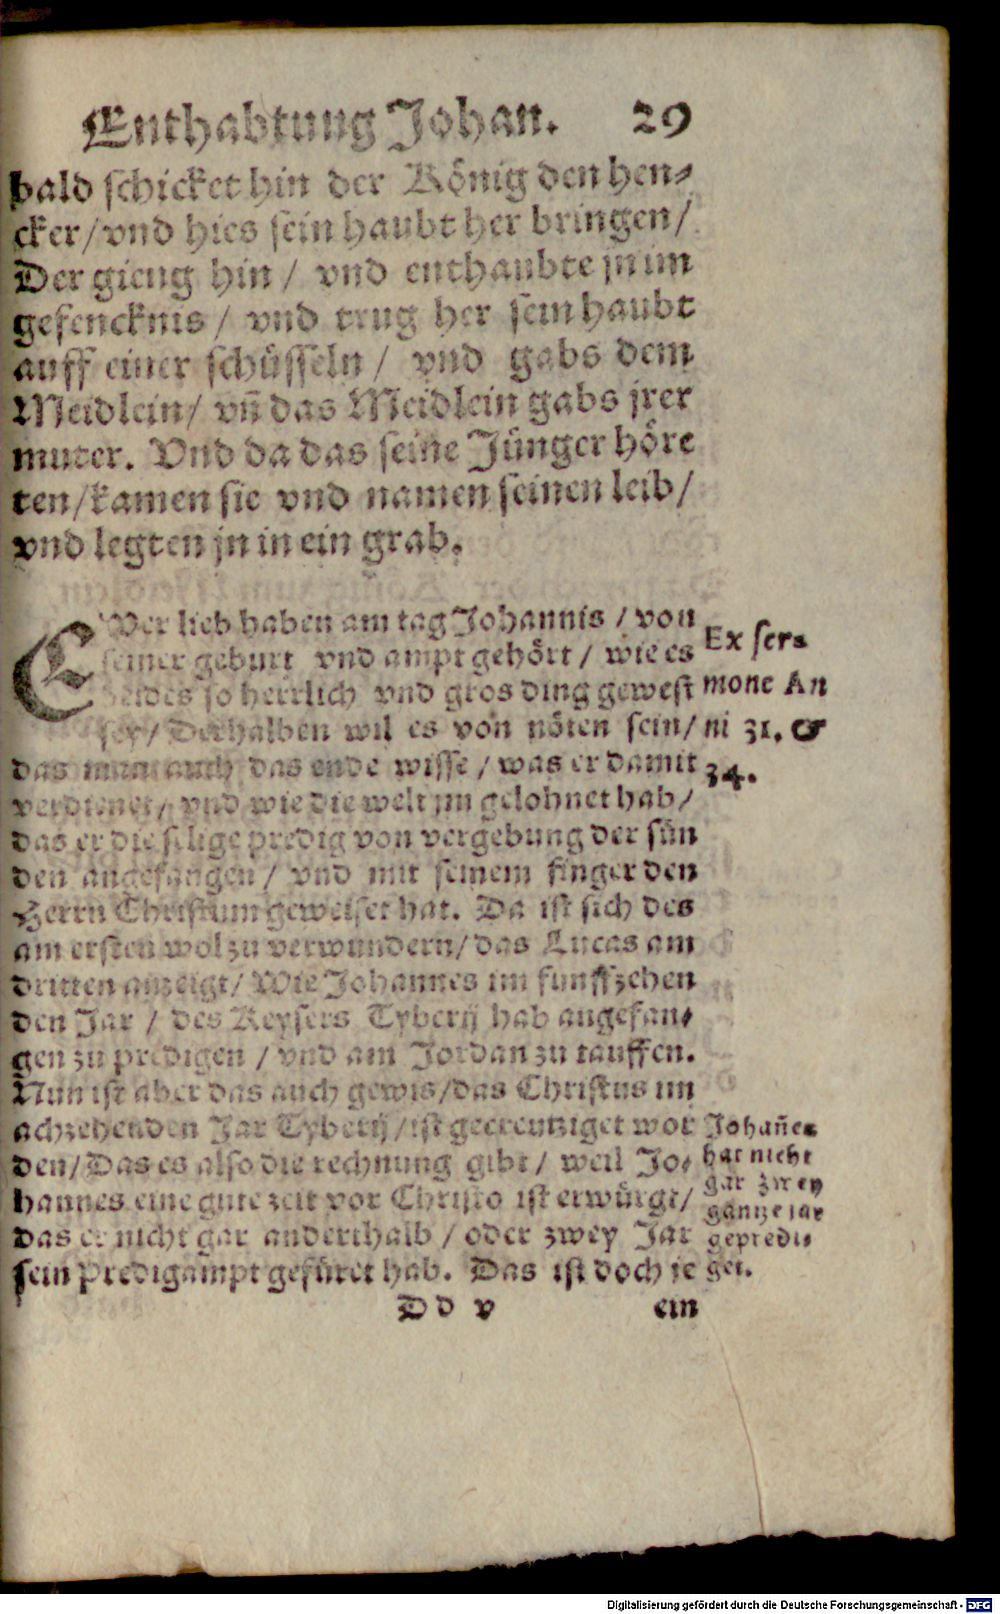 Enthabtung Johan. 29
bald schicket hin der König den hen⸗
cker/vnd hies sein haubt her bringen/
Der gieng hin / vnd enthaubte jn im
gefencknis / vnd trug her sein haubt
auff einer schüsseln / vnd gabs dem
Meidlein/ vñ das Meidlein gabs jrer
muter. Vnd da das seine Jünger höre
ten/kamen sie vnd namen seinen leib/
vnd legten jn in ein grab.
EWer lieb haben am tag Johannis / von
seiner geburt vnd ampt gehört / wie es
beides so herrlich vnd gros ding gewest
sey/ Derhalben wil es von nöten sein/
das man auch das ende wisse / was er damit
verdienet/ vnd wie die welt jm gelohnet hab/
das er die selige predig von vergebung der sün
den angefangen / vnd mit seinem finger den
Herrn Christum geweiset hat. Da ist sich des
am ersten wol zu verwundern/ das Lucas am
dritten anzeigt/ Wie Johannes im funffzehen
den Jar / des Keysers Tyberij hab angefan⸗
gen zu predigen / vnd am Jordan zu tauffen.
Nun ist aber das auch gewis/das Christus im
achzehenden Jar Tyberij/ist gecreutziget wor
den/ Das es also die rechnung gibt / weil Jo⸗
hannes eine gute zeit vor Christo ist erwürgt/
das er nicht gar anderthalb / oder zwey Jar
sein Predigampt gefüret hab. Das ist doch je
Ex ser⸗
mone An
ni 31. &
34.
Johañes
hat nicht
gar zwey
gantze jar
gepredi⸗
get.
D d v ein
Digitalisierung gefördert durch die Deutsche Forschungsgemeinschaft - DFG